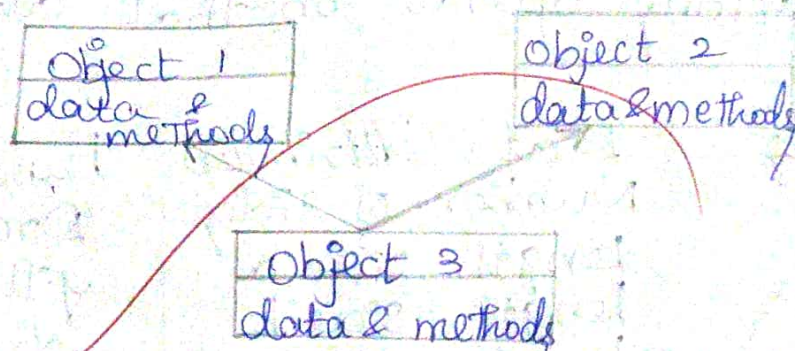 Object 1
data &
methods
object 2
data & methods
Object 3
data & methods